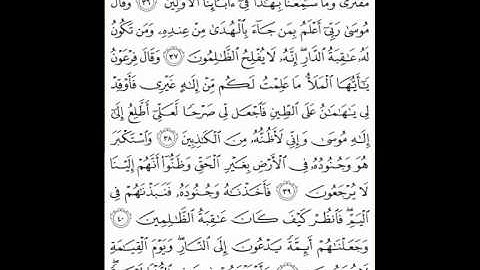 مُّفْتَرًى وَمَا سَمِعْنَا بِهَٰذَا فِىٓ ءَابَآئِنَا ٱلْأَوَّلِينَ ٣٦ وَقَالَ
مُوسَىٰ رَبِّىٓ أَعْلَمُ بِمَن جَآءَ بِٱلْهُدَىٰ مِنْ عِندِهِۦ وَمَن تَكُونُ
لَهُۥ عَٰقِبَةُ ٱلدَّارِ ۖ إِنَّهُۥ لَا يُفْلِحُ ٱلظَّٰلِمُونَ ٣٧ وَقَالَ فِرْعَوْنُ
يَٰٓأَيُّهَا ٱلْمَلَأُ مَا عَلِمْتُ لَكُم مِّنْ إِلَٰهٍ غَيْرِى فَأَوْقِدْ
لِى يَٰهَٰمَٰنُ عَلَى ٱلطِّينِ فَٱجْعَل لِّى صَرْحًا لَّعَلِّىٓ أَطَّلِعُ إِلَىٰٓ
إِلَٰهِ مُوسَىٰ وَإِنِّى لَأَظُنُّهُۥ مِنَ ٱلْكَٰذِبِينَ ٣٨ وَٱسْتَكْبَرَ
هُوَ وَجُنُودُهُۥ فِى ٱلْأَرْضِ بِغَيْرِ ٱلْحَقِّ وَظَنُّوٓا۟ أَنَّهُمْ إِلَيْنَا
لَا يُرْجَعُونَ ٣٩ فَأَخَذْنَٰهُ وَجُنُودَهُۥ فَنَبَذْنَٰهُمْ فِى
ٱلْيَمِّ ۖ فَٱنظُرْ كَيْفَ كَانَ عَٰقِبَةُ ٱلظَّٰلِمِينَ ٤٠
وَجَعَلْنَٰهُمْ أَئِمَّةً يَدْعُونَ إِلَى ٱلنَّارِ ۖ وَيَوْمَ ٱلْقِيَٰمَةِ